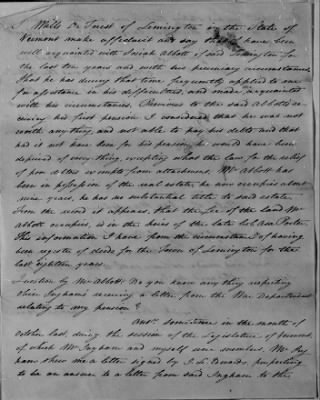 I Mills De Forest of Lemington in the State of
Vermont make affidavit and say I have been
well acquainted with Josiah Abbott of said Lemington for
the last ten years and with his pecuniary circumstances
that he has during that time frequently applied to me
for assistance in his difficulties, and made me acquainted
with his circumstances. Previous to the said Abbott's re-
ceiving his first pension I considered that he was not
worth any thing, and not able to pay his debts and that
had it not have been for his pension, he would have been
deprived of every thing, excepting what the law for the relief
of poor debtors exempts from attachment. Mr Abbott has
been in possession of the real estate he now occupies about
nine years, he has no substantial title to said estate
From the record it appears, that the fee of the land Mr
Abbott occupies, is in the heirs of the late Col Asa Porter
This information I have from the circumstance of having
been register of deeds for the Town of Lemington for the
last eighteen years.
Question by Mr Abbott. Do you know any thing respecting
Ingham's receiving a letter from the War Department
relating to my pension?
Ans. Sometime in the month of
October last, during the session of the Legislature of Vermont,
of which Mr Ingham and myself were members, Mr Ing-
ham shew me a letter signed by J. L. Edwards, purporting
to be an answer to a letter from said Ingham to the